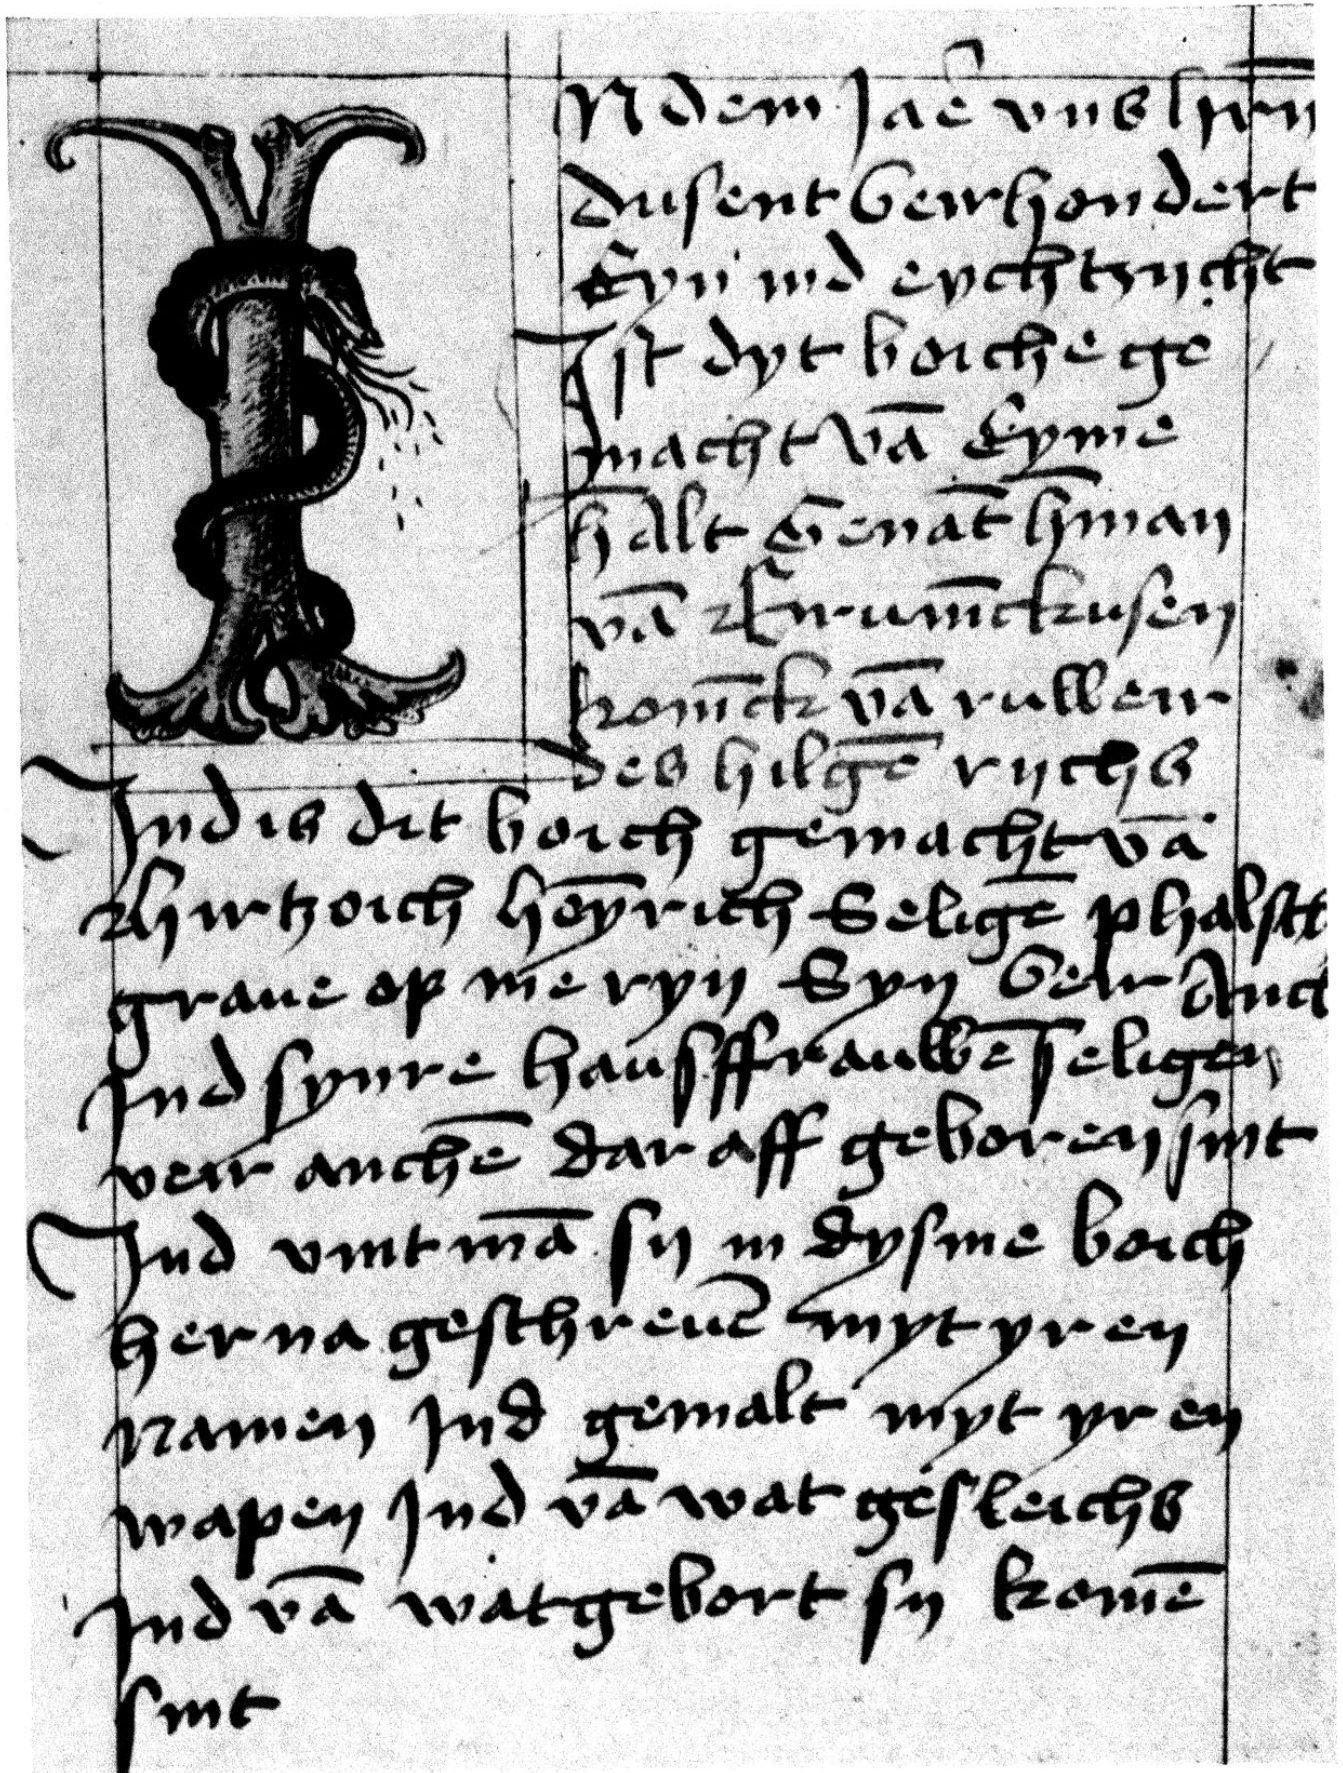 IN dem Jaē vns hrn
dusent veirhondert
Eyn ind eychtzicht
Ist dyt boiche ge
macht vā Eyme
h̄alt Genāt h̄man
vā Brunīckusen
konīck vā ruweir
des hilgē rychs
Ind is dit boich gemacht vā
Hirtzoich hēyrich Seligē phalstz
graue op me ryn Syn veir Anch
Ind synre hausffrauwē seligen
veir anchē dar aff geboren sint
Ind vint mā sy in dysme boich
her na geschreuē myt yren
Namen Ind gemalt myt yren
wapen Ind vā wat gesleichs
Ind vā wat gebort sy komē
sint